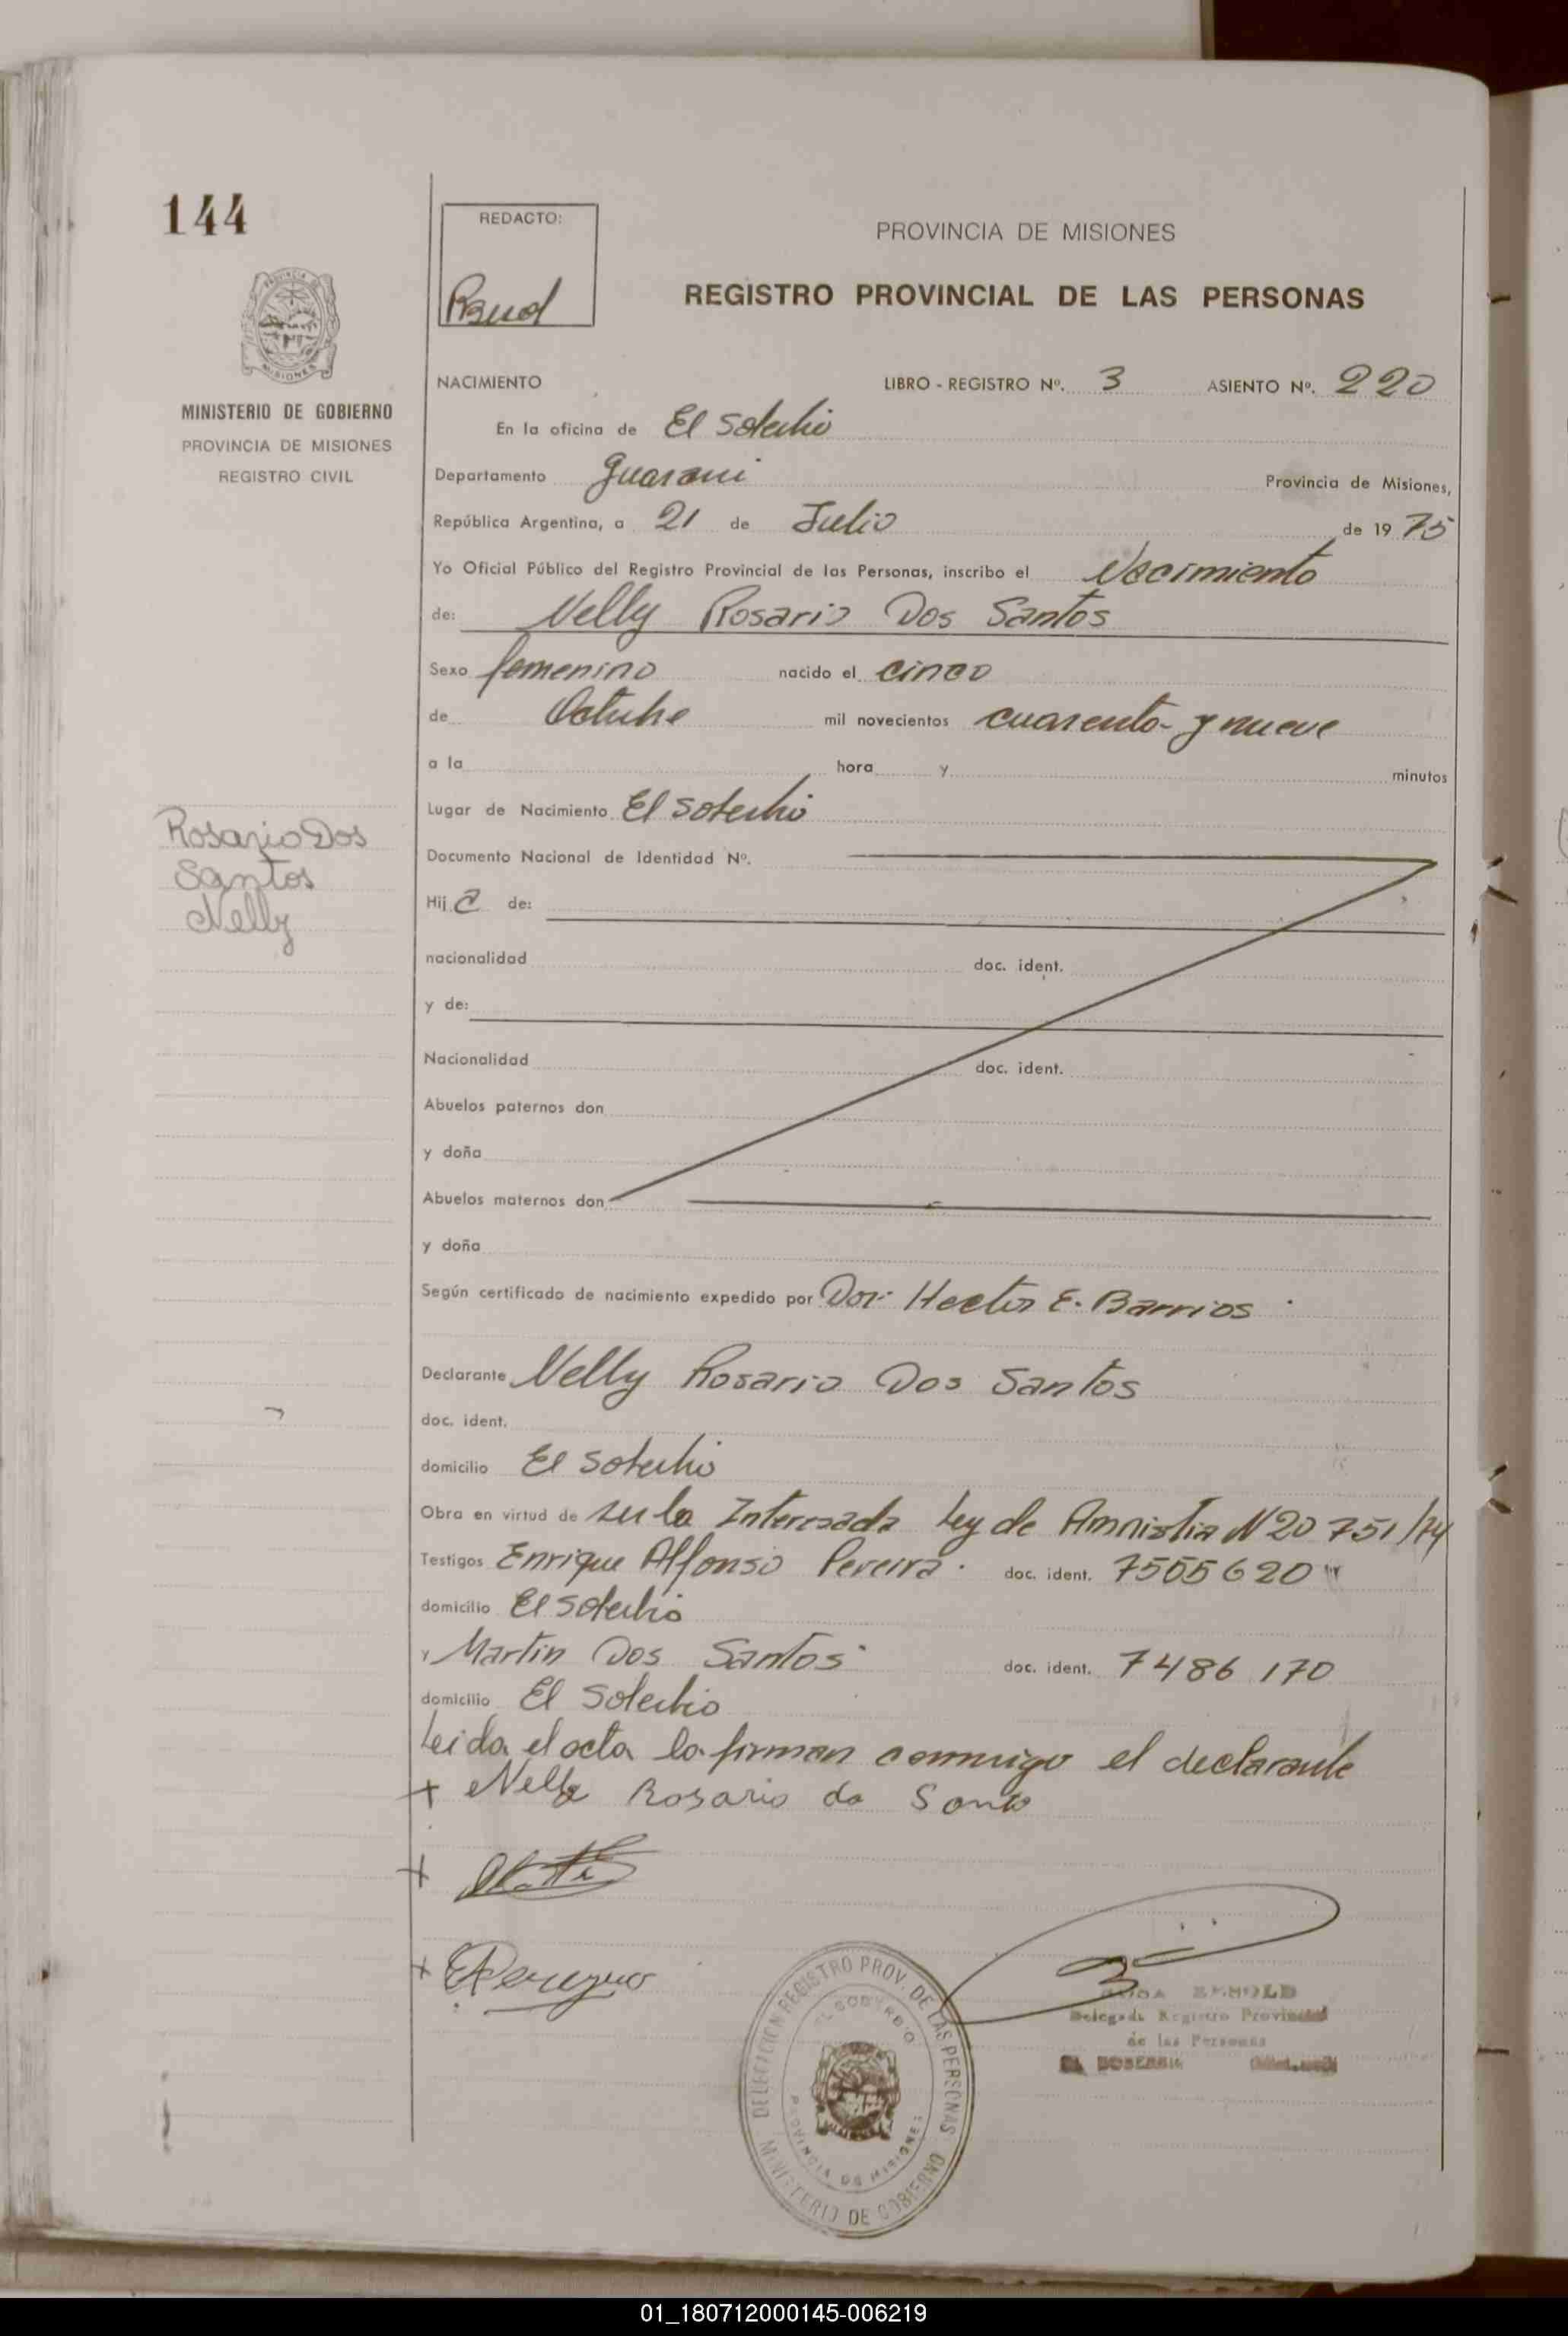 144
REDACTO:
PROVINCIA DE MISIONES
REGISTRO PROVINCIAL DE LAS PERSONAS
PROVINCIA
MISIONES
MINISTERIO DE GOBIERNO
PROVINCIA DE MISIONES
REGISTRO CIVIL
NACIMIENTO LIBRO - REGISTRO Nº. 3 ASIENTO Nº. 220
En la oficina de El Soberbio
Departamento Guarani Provincia de Misiones,
República Argentina, a 21 de Julio de 19 75
Yo Oficial Público del Registro Provincial de las Personas, inscribo el Nacimiento
de: Nelly Rosario Dos Santos
Sexo femenino nacido el cinco
de Octubre mil novecientos cuarenta y nueve
a la hora y minutos
Lugar de Nacimiento El Soberbio
Rosario Dos
Santos
Nelly
Documento Nacional de Identidad Nº.
Hij a de:
nacionalidad doc. ident.
y de:
Nacionalidad doc. ident.
Abuelos paternos don
y doña
Abuelos maternos don
y doña
Según certificado de nacimiento expedido por Dor. Hector E. Barrios
Declarante Nelly Rosario Dos Santos
doc. ident.
domicilio El Soberbio
Obra en virtud de ser la Interesada Ley de Amnistia N 20751/74
Testigos Enrique Alfonso Pereira. doc. ident. 7505620
domicilio El Soberbio
y Martin Dos Santos doc. ident. 7486170
domicilio El Soberbio
Leida el acta la firman conmigo el declarante
+ Nelly Rosario do Santo
+
+
DELEGACION REGISTRO PROV. DE LAS PERSONAS
EL SOBERBIO
PROVINCIA DE MISIONES
MINISTERIO DE GOBIERNO
Delegada Registro Provincial
de las Personas
EL SOBERBIO
01_180712000145-006219